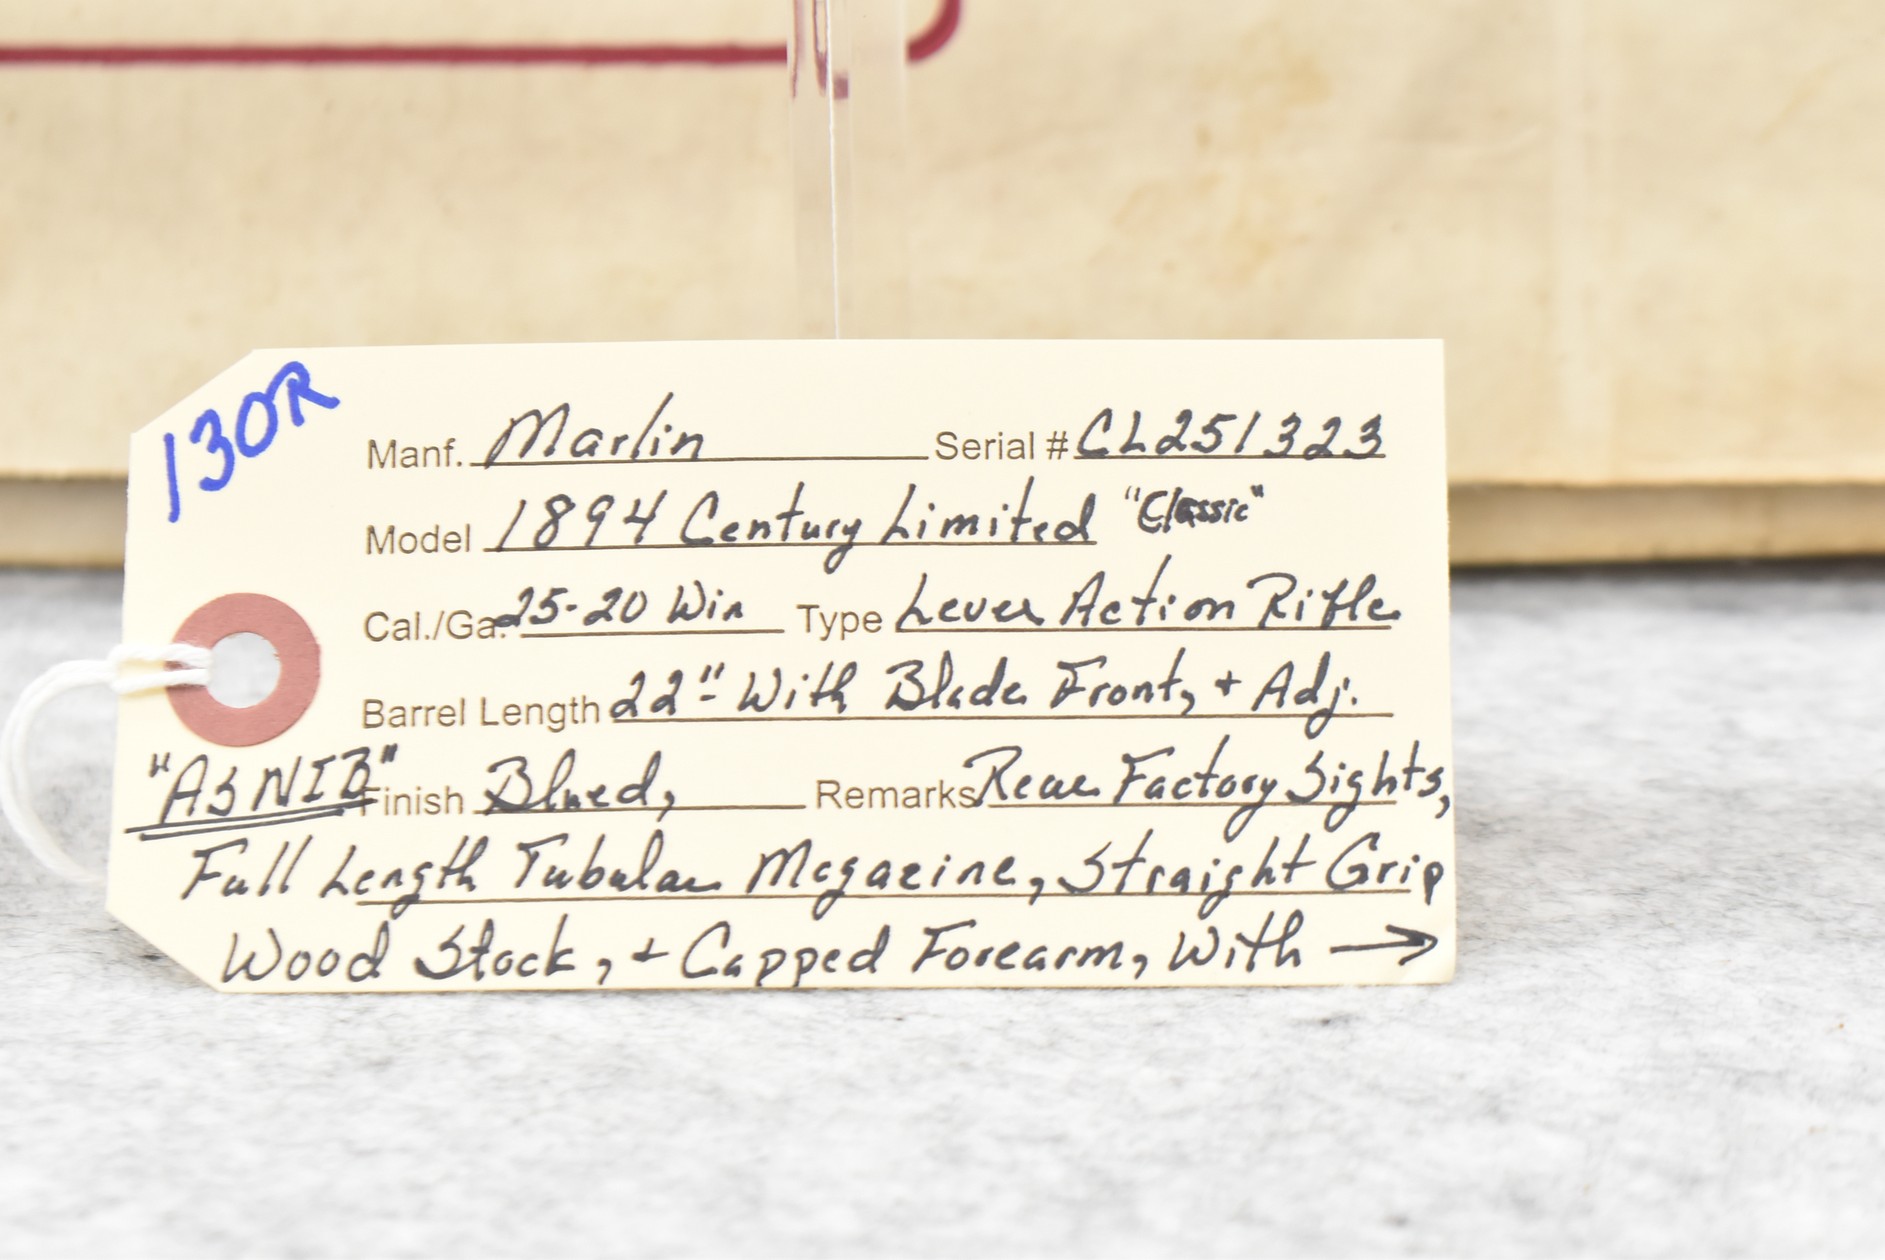 130R
Manf. Marlin Serial # CL251323
Model 1894 Century Limited "Classic"
Cal./Ga. 25-20 Win Type Lever Action Rifle
Barrel Length 22" With Blade Front, + Adj.
"ASNIB" Finish Blued, Remarks Rear Factory Sights,
Full Length Tubular Magazine, Straight Grip
Wood Stock, + Capped Forearm, With →